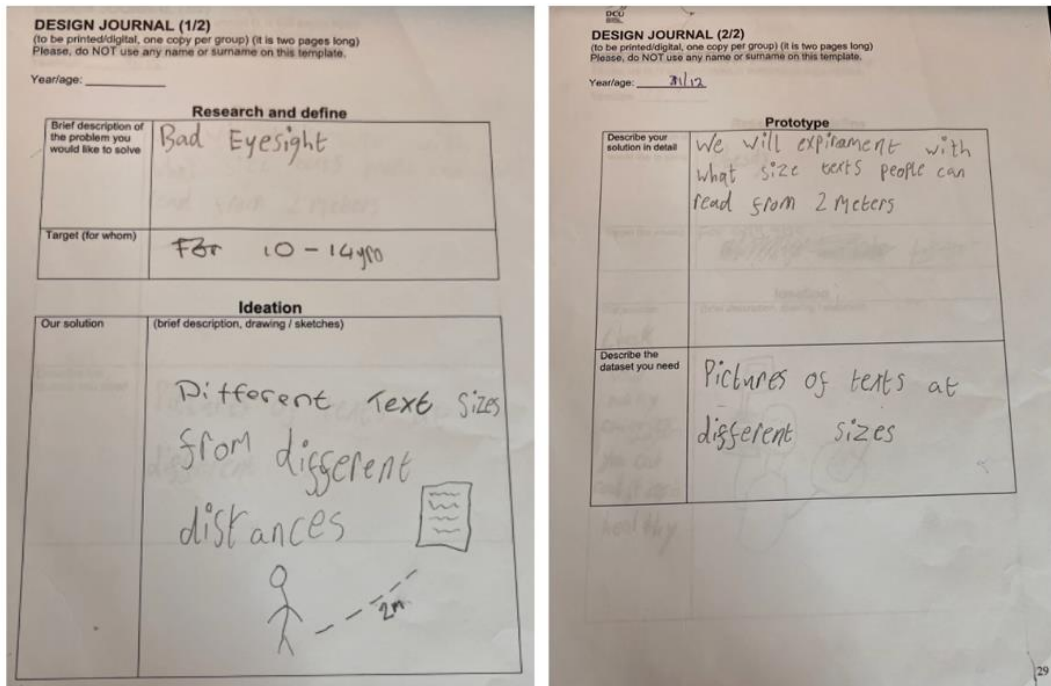 DESIGN JOURNAL (1/2)
(to be printed/digital, one copy per group) (it is two pages long)
Please, do NOT use any name or surname on this template.
Year/age:
Research and define
Brief description of
the problem you
would like to solve
Bad Eyesight
Target (for whom)
For 10-14yro
Ideation
Our solution
(brief description, drawing / sketches)
Different Text Sizes
from different
distances
2m
DCU
DESIGN JOURNAL (2/2)
(to be printed/digital, one copy per group) (it is two pages long)
Please, do NOT use any name or surname on this template.
Year/age: /12
Prototype
Describe your
solution in detail
We will expirament with
what size texts people can
read from 2 meters
Describe the
dataset you need
Pictures of texts at
different sizes
29